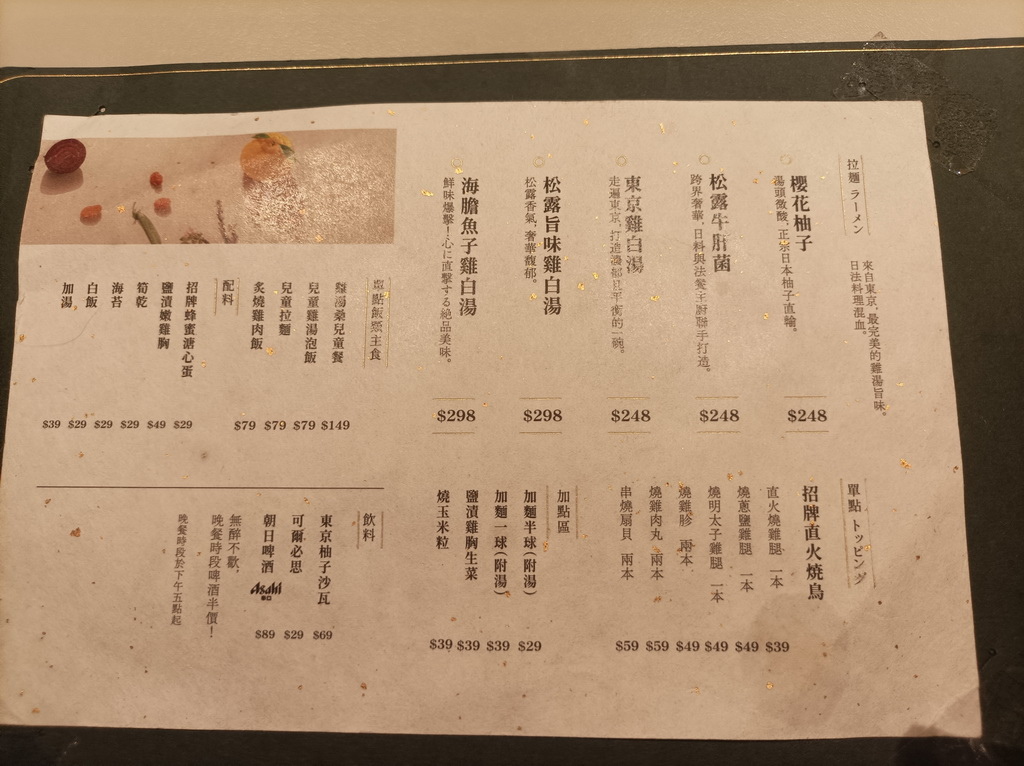 拉麵 ラーメン
來自東京,最完美的雞湯旨味。
日法料理混血。
櫻花柚子
湯頭微酸,正宗日本柚子直輸。
$248
松露牛肝菌
跨界奢華,日料與法餐主廚聯手打造。
$248
東京雞白湯
走遍東京,打造濃郁且平衡的一碗。
$248
松露旨味雞白湯
松露香氣,奢華馥郁。
$298
海膽魚子雞白湯
鮮味爆擊!心に直撃する絶品美味。
$298
單點 トッピング
招牌直火燒鳥
直火燒雞腿 一本 $39
燒蔥鹽雞腿 一本 $49
燒明太子雞腿 一本 $49
燒雞胗 兩本 $49
燒雞肉丸 兩本 $59
串燒扇貝 兩本 $59
加點區
加麵半球(附湯) $29
加麵一球(附湯) $39
鹽漬雞胸生菜 $39
燒玉米粒 $39
單點飯類主食
雞湯桑兒童餐 $149
兒童雞湯泡飯 $79
兒童拉麵 $79
炙燒雞肉飯 $79
配料
招牌蜂蜜溏心蛋 $29
鹽漬嫩雞胸 $49
筍乾 $29
海苔 $29
白飯 $29
加湯 $39
飲料
東京柚子沙瓦 $69
可爾必思 $29
朝日啤酒 Asahi $89
無醉不歡,
晚餐時段啤酒半價!
晚餐時段於下午五點起